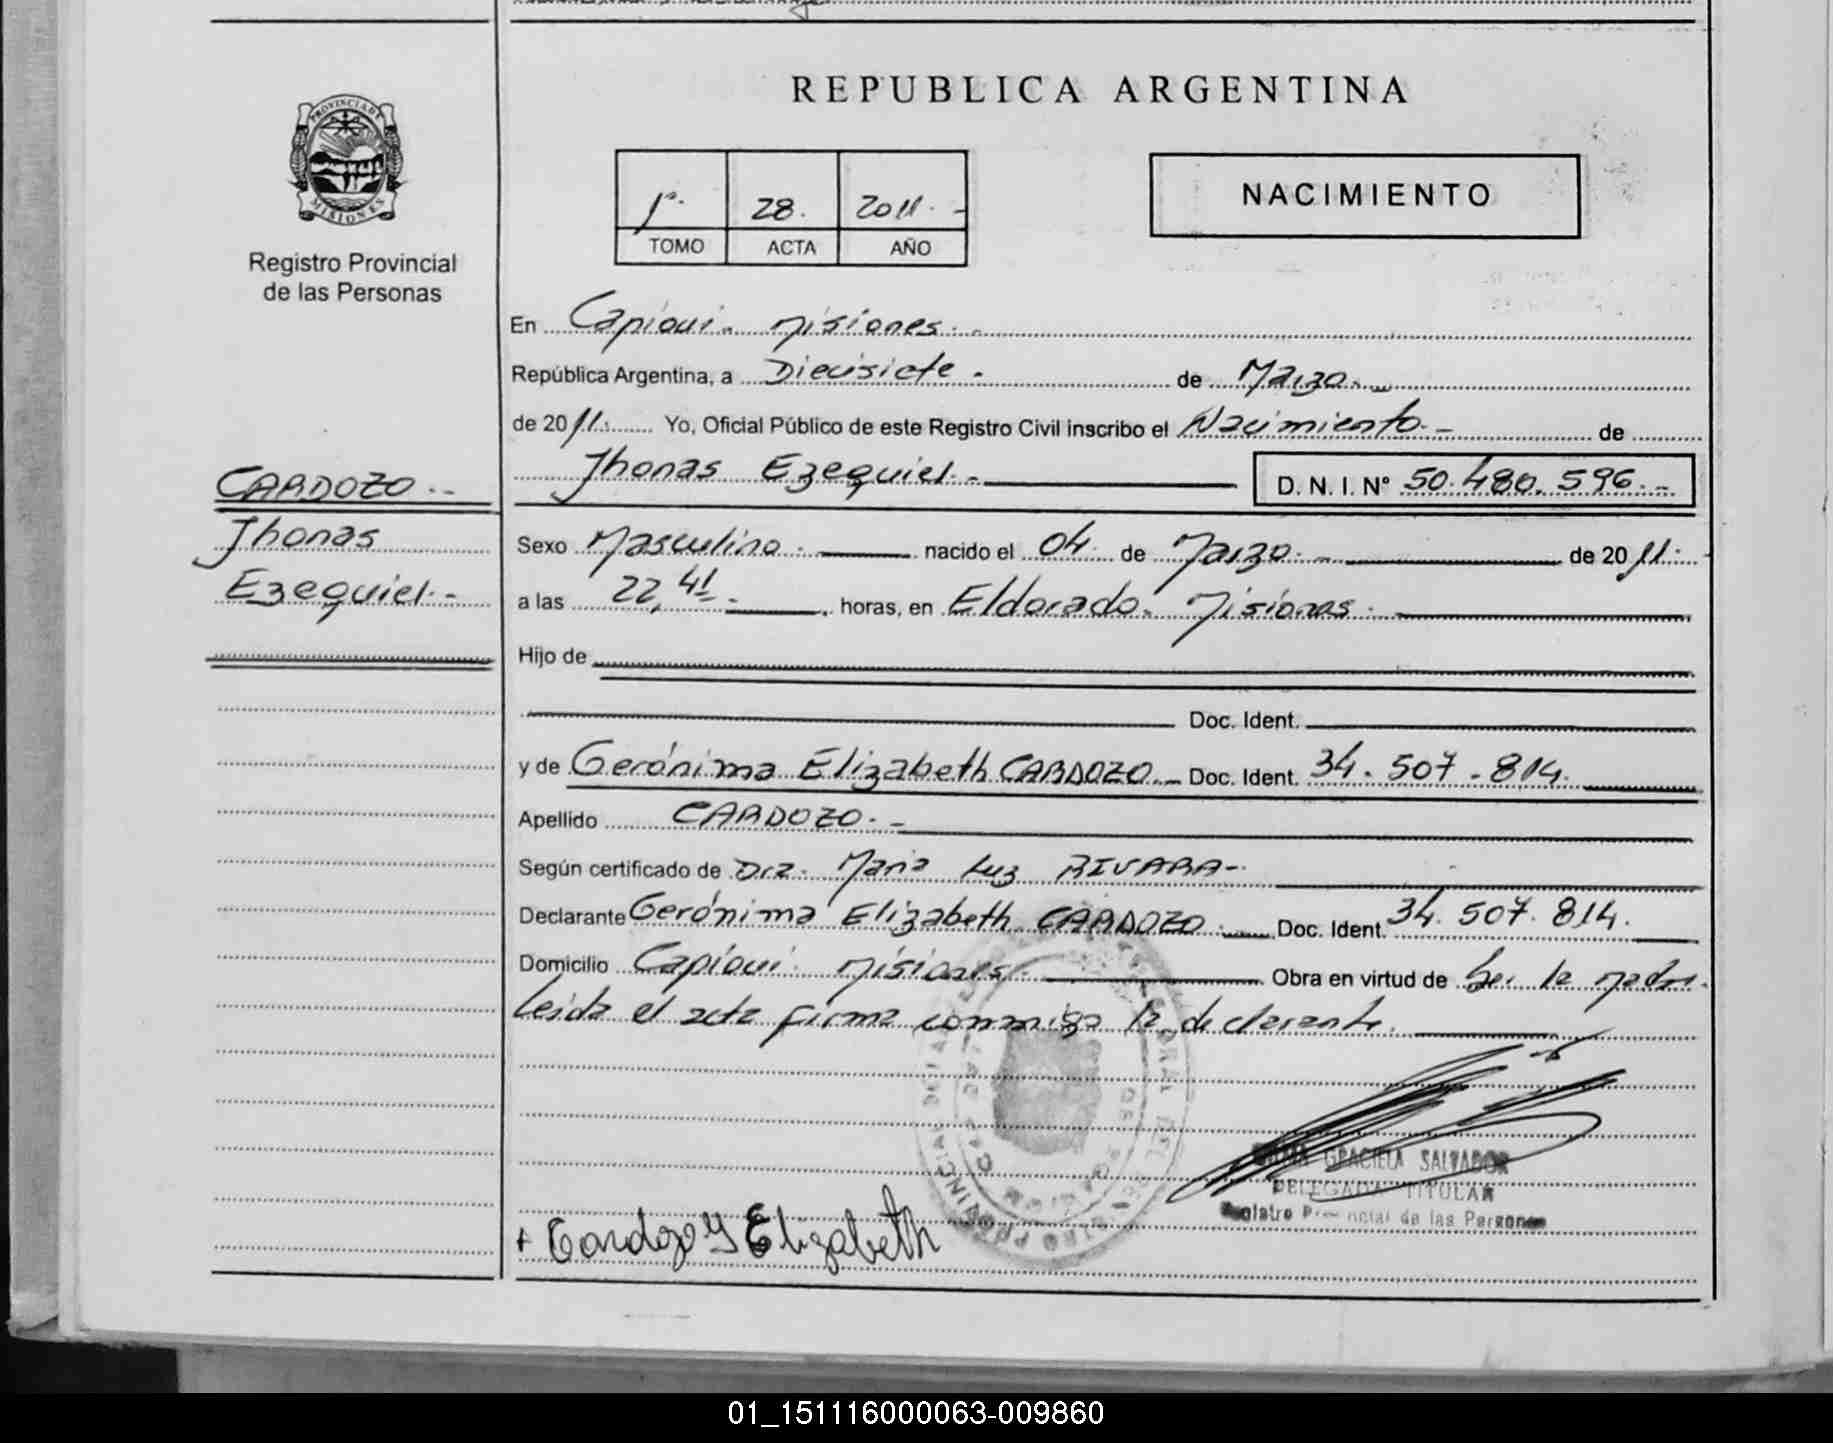 REPUBLICA ARGENTINA
PROVINCIA DE MISIONES
Registro Provincial
de las Personas
1º. 28. 2011.-
TOMO ACTA AÑO
NACIMIENTO
En Capiovi.- Misiones.-
República Argentina, a Diecisiete.- de Marzo.-
de 2011. Yo, Oficial Público de este Registro Civil inscribo el Nacimiento.- de
Jhonas Ezequiel.- D. N. I. Nº 50.480.596.-
CARDOZO.-
Jhonas
Ezequiel.-
Sexo Masculino.- nacido el 04. de Marzo.- de 2011.
a las 22,41.- horas, en Eldorado. Misiones.-
Hijo de
Doc. Ident.
y de Gerónima Elizabeth CARDOZO.- Doc. Ident. 34.507.814.
Apellido CARDOZO.-
Según certificado de Dra. María Luz RIVARA-
Declarante Gerónima Elizabeth CARDOZO.- Doc. Ident. 34.507.814.
Domicilio Capiovi. Misiones.- Obra en virtud de Ser la madre.
Leída el acta firma conmigo la declarante.
GRACIELA SALVADOR
DELEGADA TITULAR
Registro Provincial de las Personas
+ Cardozo G Elizabeth
01_151116000063-009860